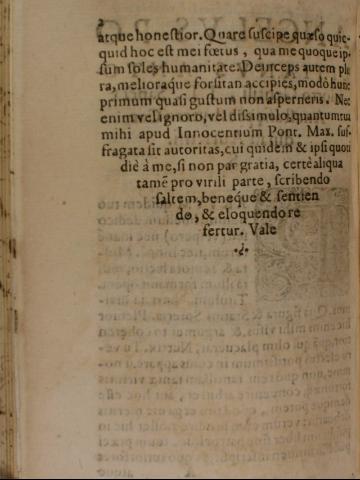 atque honestior. Quare suscipe quæso quic-
quid hoc est mei fœtus, qua me quoque ip-
sum soles humanitate. Deinceps autem plu
ra, melioraque forsitan accipies, modò hunc
primum quasi gustum non asperneris. Nec
enim vel ignoro, vel dissimulo, quantum tua
mihi apud Innocentium Pont. Max. suf-
fragata sit autoritas, cui quidem & ipsi quoti
die à me, si non par gratia, certè aliqua
tamẽ pro virili parte, scribendo
saltem, beneque & sentien
do, & eloquendo re
fertur. Vale